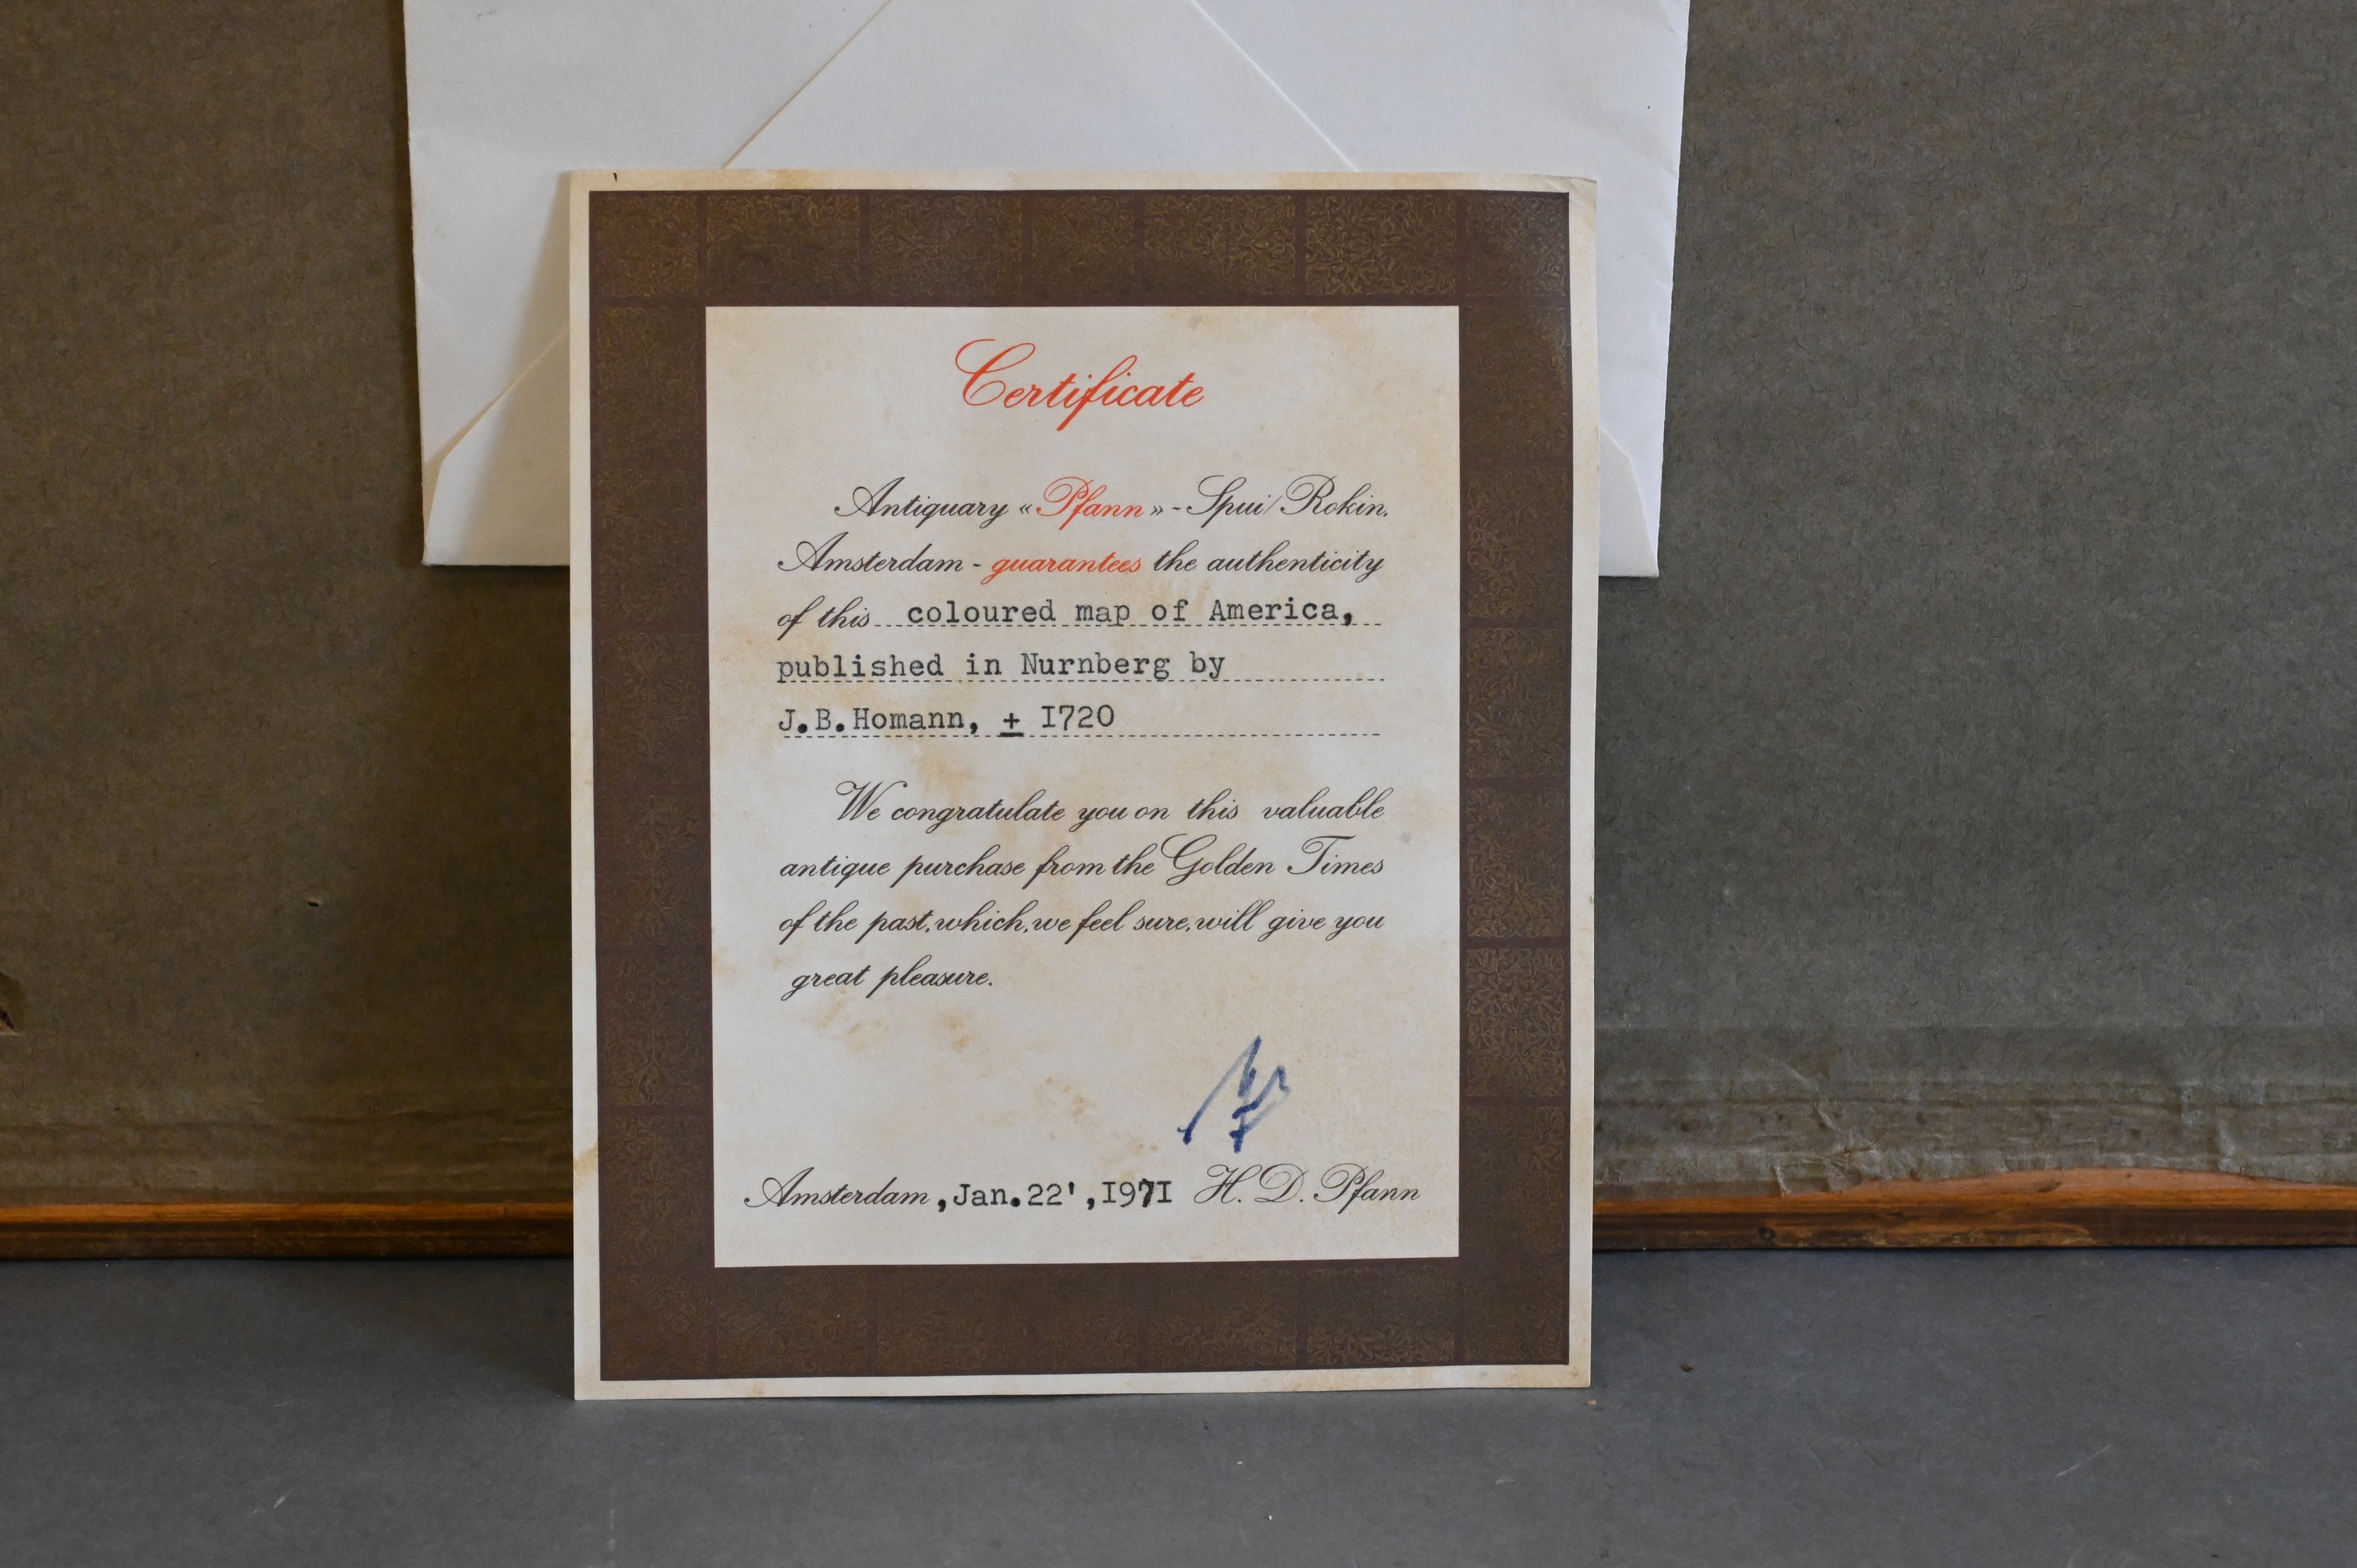 Certificate
Antiquary «Pfann» - Spui/Rokin,
Amsterdam - guarantees the authenticity
of this coloured map of America,
published in Nurnberg by
J.B.Homann, ± I720
We congratulate you on this valuable
antique purchase from the Golden Times
of the past, which, we feel sure, will give you
great pleasure.
Amsterdam, Jan.22',I97I H. D. Pfann